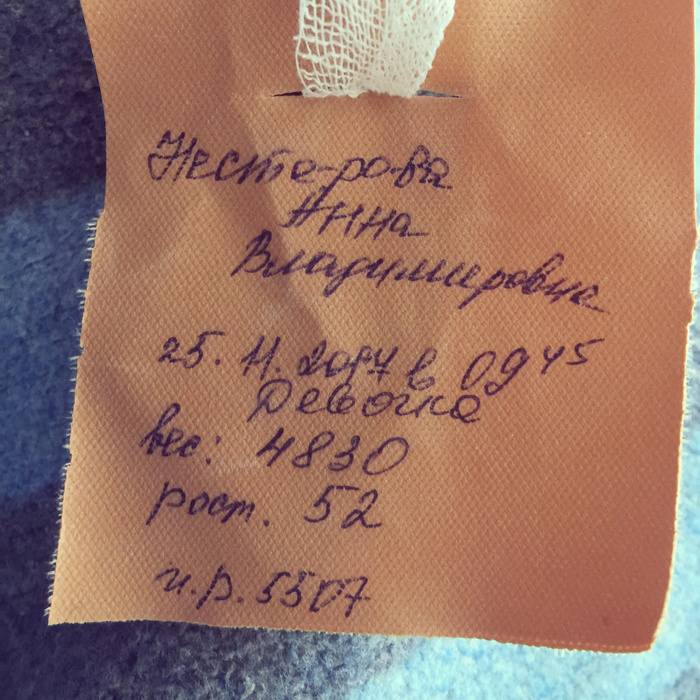 Нестерова
Анна
Владимировна
25. 11. 2017 в 09 45
Девочка
вес: 4830
рост. 52
и.р. 5507